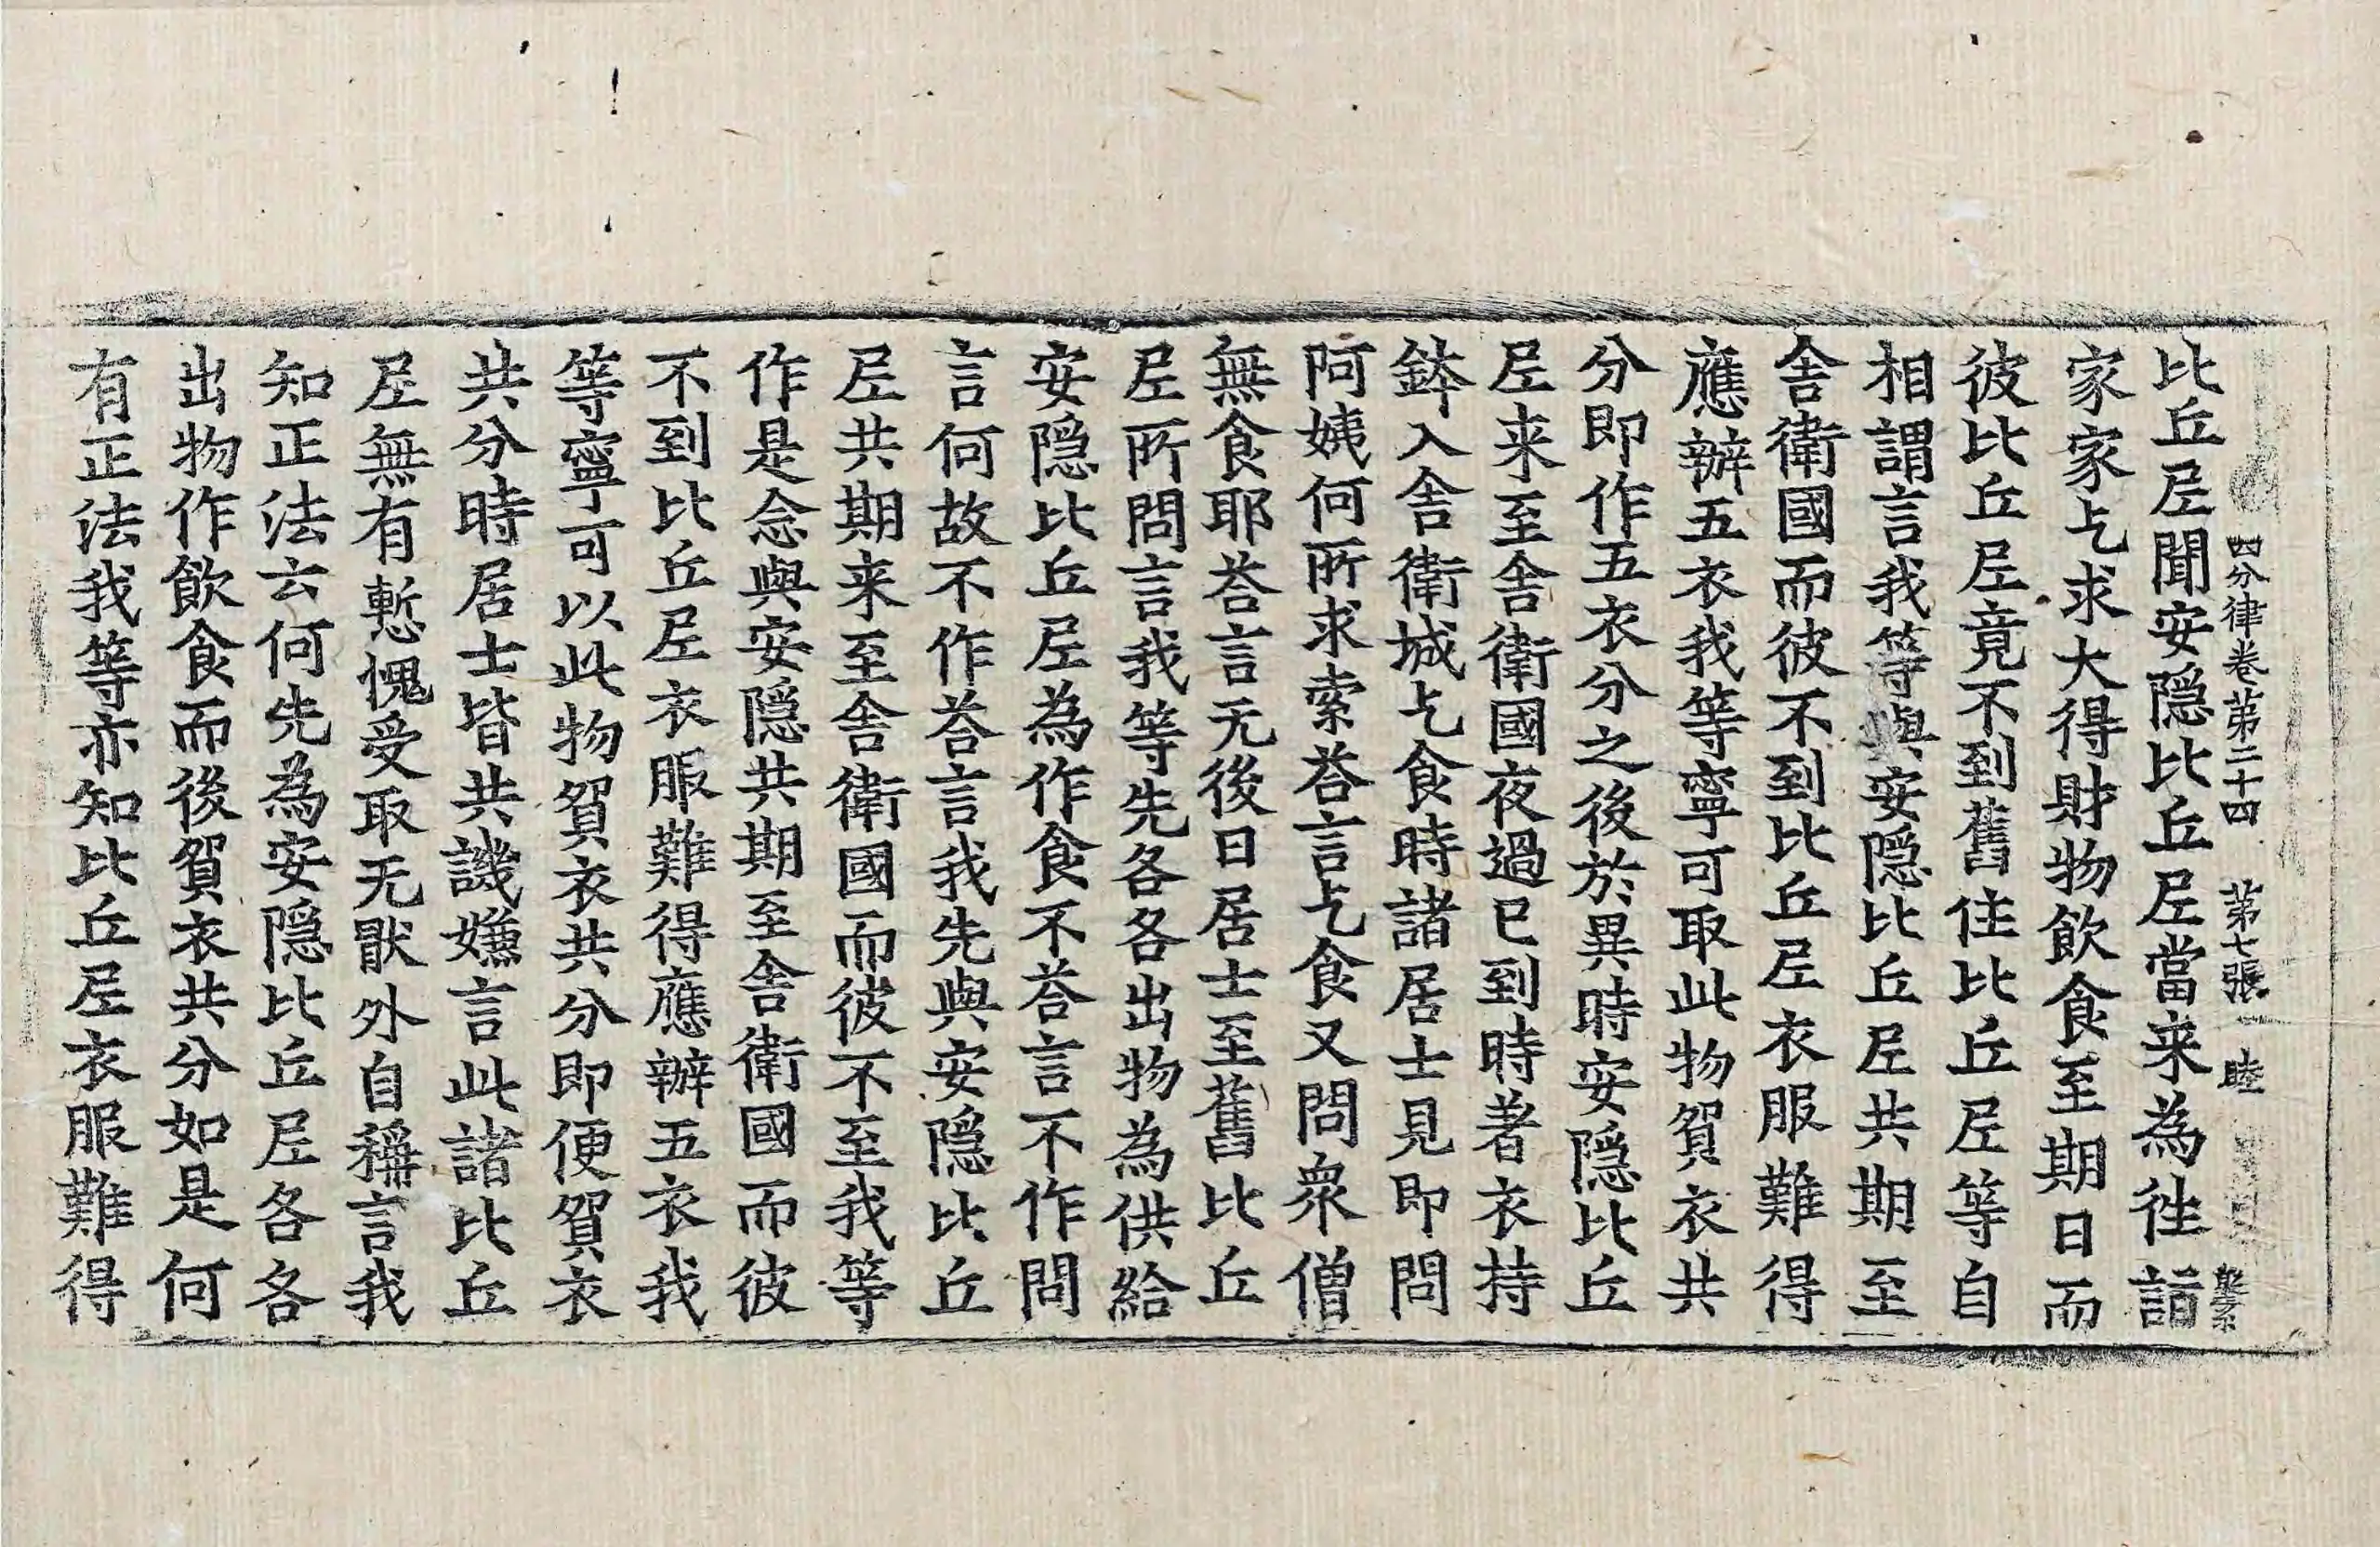 四分律卷第二十四 苐七張 睦
比丘尼聞安隠比丘尼當来為徃詣
家家乞求大得財物飲食至期日而
彼比丘尼竟不到舊住比丘尼等自
相謂言我等與安隠比丘尼共期至
舎衛國而彼不到比丘尼衣服難得
應辦五衣我等寧可取此物貿衣共
分即作五衣分之後於異時安隠比丘
尼来至舎衛國夜過已到時著衣持
鉢入舎衛城乞食時諸居士見即問
阿姨何所求索荅言乞食又問衆僧
無食耶荅言无後日居士至舊比丘
尼所問言我等先各各出物為供給
安隠比丘尼為作食不荅言不作問
言何故不作荅言我先與安隠比丘
尼共期来至舎衛國而彼不至我等
作是念與安隠共期至舎衛國而彼
不到比丘尼衣服難得應辦五衣我
等寧可以此物貿衣共分即便貿衣
共分時居士皆共譏嫌言此諸比丘
尼無有慙愧受取无猒外自稱言我
知正法云何先為安隠比丘尼各各
出物作飲食而後貿衣共分如是何
有正法我等亦知比丘尼衣服難得